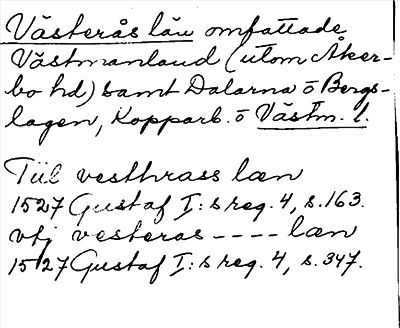 Västerås län omfattade
Västmanland (utom Åker-
bo hd) samt Dalarna o Bergs-
lagen, Kopparb. o Västm. l.
Tiil vesthrass læn
1527 Gustaf I:s reg. 4, s. 163.
vtj vesteras ---- læn
1527 Gustaf I:s reg. 4, s. 347.